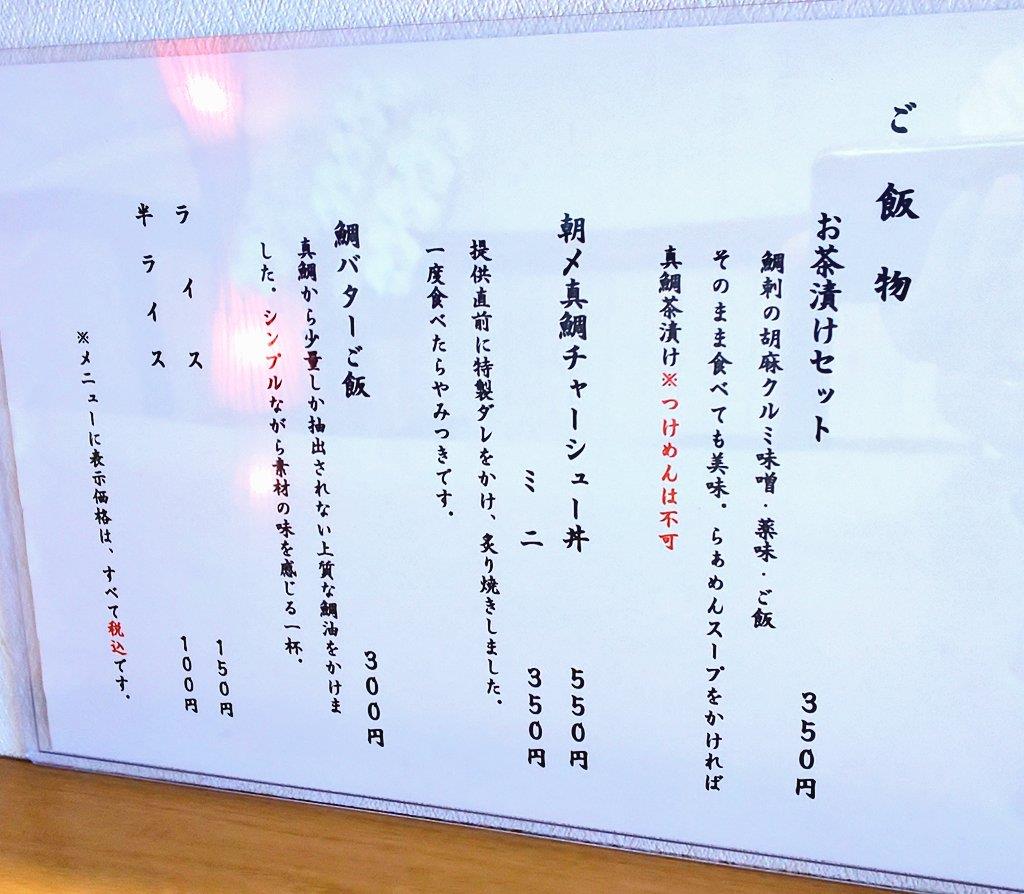 ご飯物
お茶漬けセット 350円
鯛刺の胡麻クルミ味噌・薬味・ご飯
そのまま食べても美味。らぁめんスープをかければ
真鯛茶漬け※つけめんは不可
朝〆真鯛チャーシュー丼 550円
ミニ 350円
提供直前に特製ダレをかけ、炙り焼きしました。
一度食べたらやみつきです。
鯛バターご飯 300円
真鯛から少量しか抽出されない上質な鯛油をかけま
した。シンプルながら素材の味を感じる一杯。
ライス 150円
半ライス 100円
※メニューに表示価格は、すべて税込です。